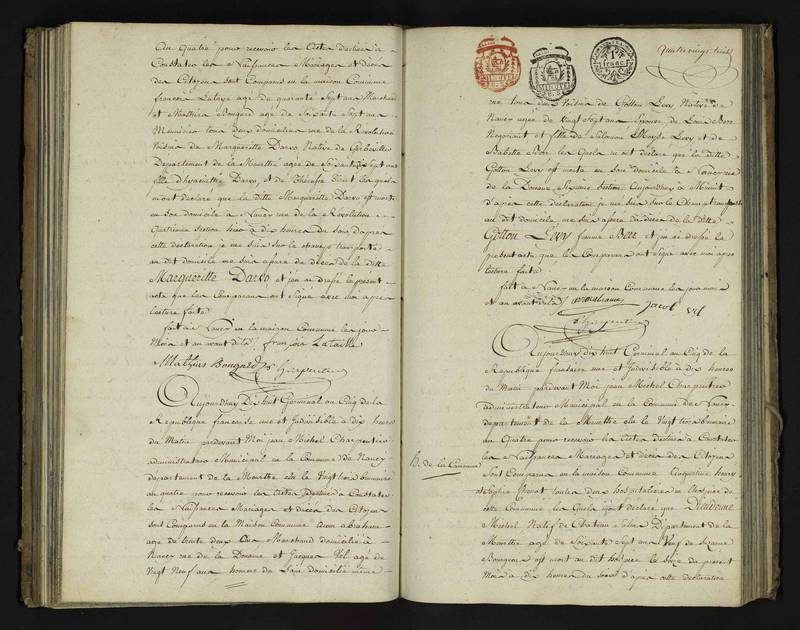 au quatre pour recevoir les actes destinés à
Constater les Naissances Mariages et décès
des Citoyens sont Comparus en la maison Commune
françois Lataye age de quarante Sept ans Marchand
et Mathieu Bongard age de soixante sept ans
Menuisier tous deux domiciliés rue de la Revolution
voisins de Margueritte Darvo Native de Gerbeviller
Departement de la Meurthe agée de soixante sept ans
fille d'hyacinthe Darvo et de Therese les quels
m'ont declaré que la ditte Margueritte Darvo est morte
en son domicile à Nancy rue de la Revolution
Quatrieme Section hier à dix heures du soir d'apres
cette declaration je me suis sur le champ transporté
au dit domicile me suis assuré du décès de la ditte
Margueritte Darvo et j'en ai dressé le présent
acte que les Comparans ont Signé avec moi apres
lecture faite
fait à Nancy en la maison Commune les jour
Mois et an avant dit françois Lataille
Mathieu Bongard Charpentier
Aujourdhuy Dix huit Germinal au Cinq de la
Republique francaise une et Indivisible à dix heures
du Matin pardevant Moi jean Michel Charpentier
administrateur Municipal en la Commune de Nancy
departement de la Meurthe elu le Vingt trois brumaire
au quatre pour recevoir les actes destinés à Constater
les Naissances Mariages et décès des Citoyens
sont Comparus en la Maison Commune Aron abraham
age de trente deux ans Marchand domicilié à
Nancy rue de la Douane et Jacques Vel age de
Vingt Neuf ans homme de Loix domicilié même
quatre vingt treize
rue tous deux voisins de Gotton Levy Native de
Nancy agée de Vingt sept ans Epouse de Louis Beer
Negociant et fille de Salomon Moyse Levy et de
Babette Beer les Quels m'ont déclaré que la ditte
Gotton Levy est morte en son domicile à Nancy rue
de la Douane Sixieme Section Aujourdhuy à Minuit
d'apres cette declaration je me suis sur le Champ transporté
au dit domicile me suis assuré du décès de la ditte
Gotton Levy femme Beer et j'en ai dressé le
présent acte que les Comparans ont Signé avec moi apres
lecture faite
fait à Nancy en la maison Commune les jour mois
et an avant dit aron abraham Jacob Vel
Charpentier
Aujourdhuy dix huit Germinal au Cinq de la
Republique francaise une et Indivisible à dix heures
du Matin pardevant Moi jean Michel Charpentier
administrateur Municipal en la Commune de Nancy
departement de la Meurthe elu le Vingt trois brumaire
au Quatre pour recevoir les actes destinés à Constater
les Naissances Mariages et décès des Citoyens
H. de la Commune
sont Comparus en la maison Commune henry
et Sophie touttes deux hospitalieres en l'hospice de
cette Commune les Quels m'ont declaré que Dieudonné
Michel Natif de Chateau Salins Departement de la
Meurthe age de Soixante Sept ans Veuf de Suzanne
Bourgeois est mort au dit hospice le Seize du présent
Mois à dix heures du soir d'apres cette declaration